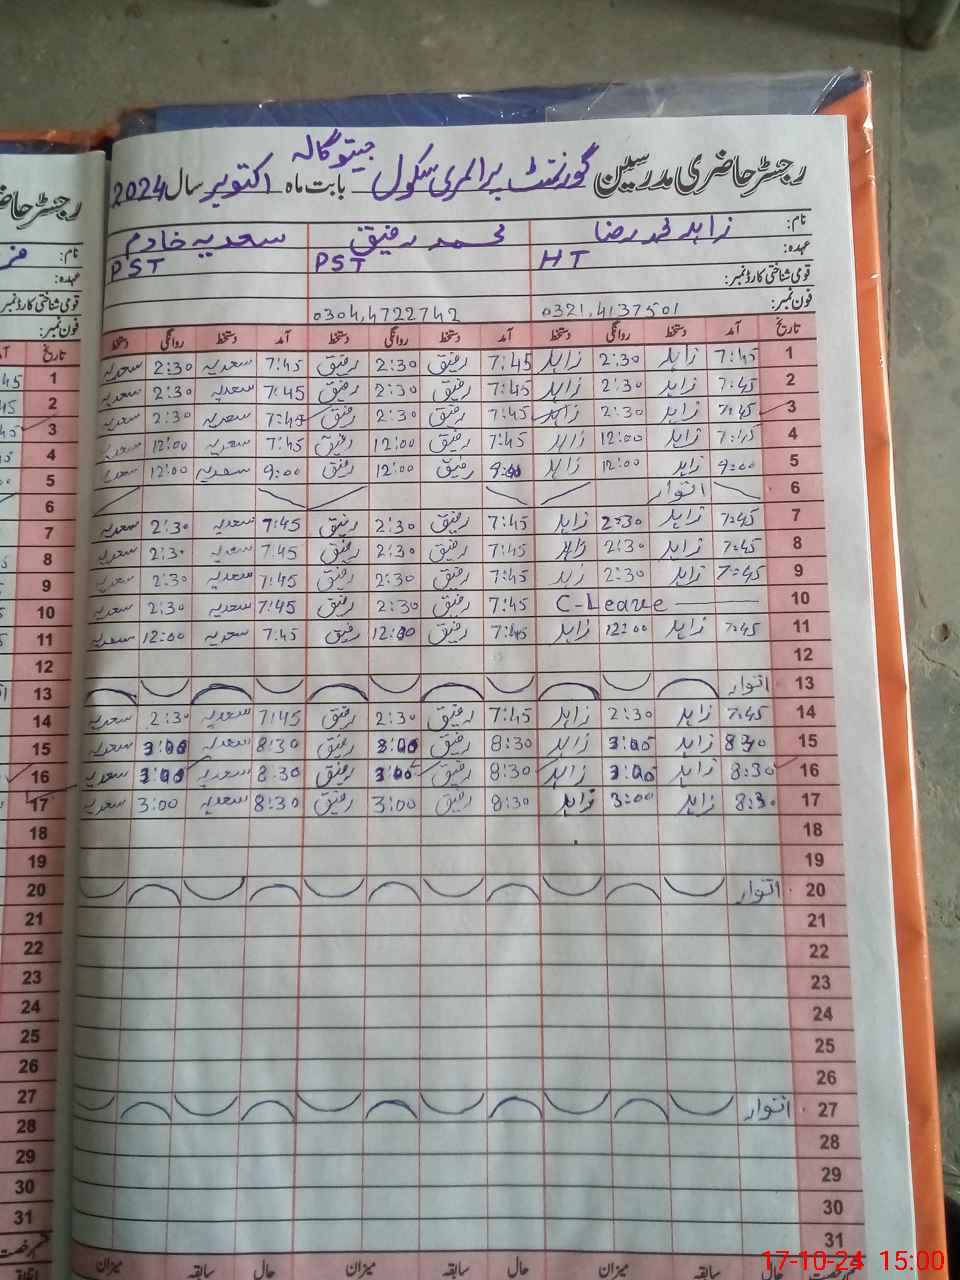 رجسٹر حاضری مدرسین گورنمنٹ پرائمری سکول جیتو گالہ بابت ماہ اکتوبر سال 2024
نام: زاہد محمد رضا محمد رفیق سعدیہ خادم
عہدہ: HT PST PST
قومی شناختی کارڈ نمبر:
فون نمبر: 0321.4137501 0304.4722742
تاریخ آمد دستخط روانگی دستخط آمد دستخط روانگی دستخط آمد دستخط روانگی دستخط
1 7:45 زاہد 2:30 زاہد 7:45 رفیق 2:30 رفیق 7:45 سعدیہ 2:30 سعدیہ
2 7:45 زاہد 2:30 زاہد 7:45 رفیق 2:30 رفیق 7:45 سعدیہ 2:30 سعدیہ
3 7:45 زاہد 2:30 زاہد 7:45 رفیق 2:30 رفیق 7:45 سعدیہ 2:30 سعدیہ
4 7:45 زاہد 12:00 زاہد 7:45 رفیق 12:00 رفیق 7:45 سعدیہ 12:00 سعدیہ
5 9:00 زاہد 12:00 زاہد 9:00 رفیق 12:00 رفیق 9:00 سعدیہ 12:00 سعدیہ
6 اتوار
7 7:45 زاہد 2:30 زاہد 7:45 رفیق 2:30 رفیق 7:45 سعدیہ 2:30 سعدیہ
8 7:45 زاہد 2:30 زاہد 7:45 رفیق 2:30 رفیق 7:45 سعدیہ 2:30 سعدیہ
9 7:45 زاہد 2:30 زاہد 7:45 رفیق 2:30 رفیق 7:45 سعدیہ 2:30 سعدیہ
10 C-Leave 7:45 رفیق 2:30 رفیق 7:45 سعدیہ 2:30 سعدیہ
11 7:45 زاہد 12:00 زاہد 7:45 رفیق 12:00 رفیق 7:45 سعدیہ 12:00 سعدیہ
12
13 اتوار
14 7:45 زاہد 2:30 زاہد 7:45 رفیق 2:30 رفیق 7:45 سعدیہ 2:30 سعدیہ
15 8:30 زاہد 3:00 زاہد 8:30 رفیق 3:00 رفیق 8:30 سعدیہ 3:00 سعدیہ
16 8:30 زاہد 3:00 زاہد 8:30 رفیق 3:00 رفیق 8:30 سعدیہ 3:00 سعدیہ
17 8:30 زاہد 3:00 زاہد 8:30 رفیق 3:00 رفیق 8:30 سعدیہ 3:00 سعدیہ
18
19
20 اتوار
21
22
23
24
25
26
27 اتوار
28
29
30
31
حال سابقہ میزان حال سابقہ میزان حال سابقہ میزان
رجسٹر حا
نام:
عہدہ:
قومی شناختی کارڈ نمبر
فون نمبر:
تاریخ
1
2
3
4
5
6
7
8
9
10
11
12
13
14
15
16
17
18
19
20
21
22
23
24
25
26
27
28
29
30
31
17-10-24 15:00